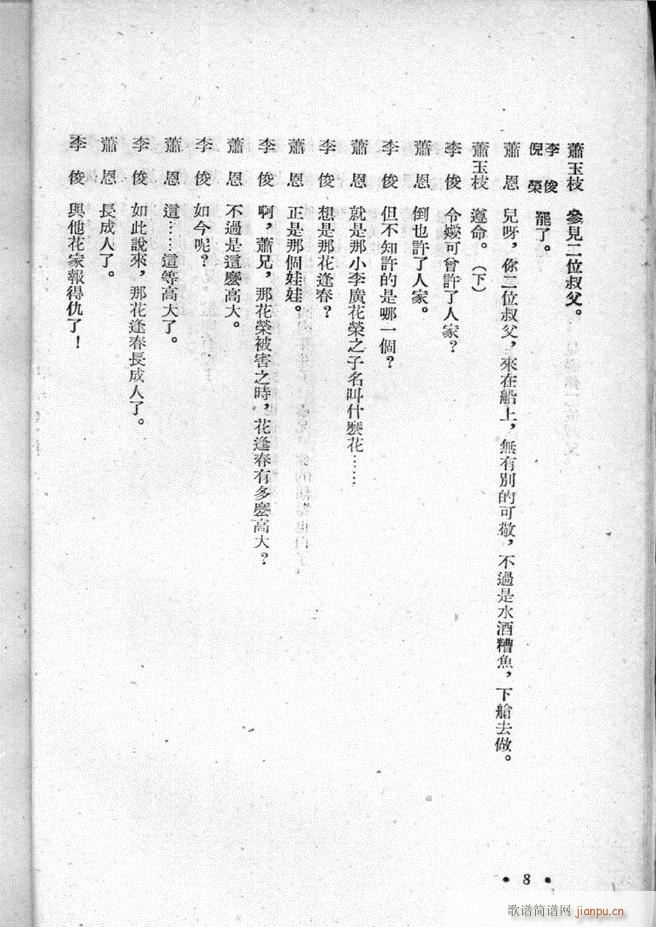 蕭玉枝　參見二位叔父。
李俊
倪榮　罷了。
蕭　恩　兒呀，你二位叔父，來在船上，無有別的可敬，不過是水酒糟魚，下艙去做。
蕭玉枝　遵命。（下）
李　俊　令嬡可曾許了人家？
蕭　恩　倒也許了人家。
李　俊　但不知許的是哪一個？
蕭　恩　就是那小李廣花榮之子名叫什麼花……
李　俊　想是那花逢春？
蕭　恩　正是那個娃娃。
李　俊　啊，蕭兄，那花榮被害之時，花逢春有多麼高大？
蕭　恩　不過是這麼高大。
李　俊　如今呢？
蕭　恩　這……這等高大了。
李　俊　如此說來，那花逢春長成人了。
蕭　恩　長成人了。
李　俊　與他花家報得仇了！
• 8 •
歌谱简谱网
jianpu.cn